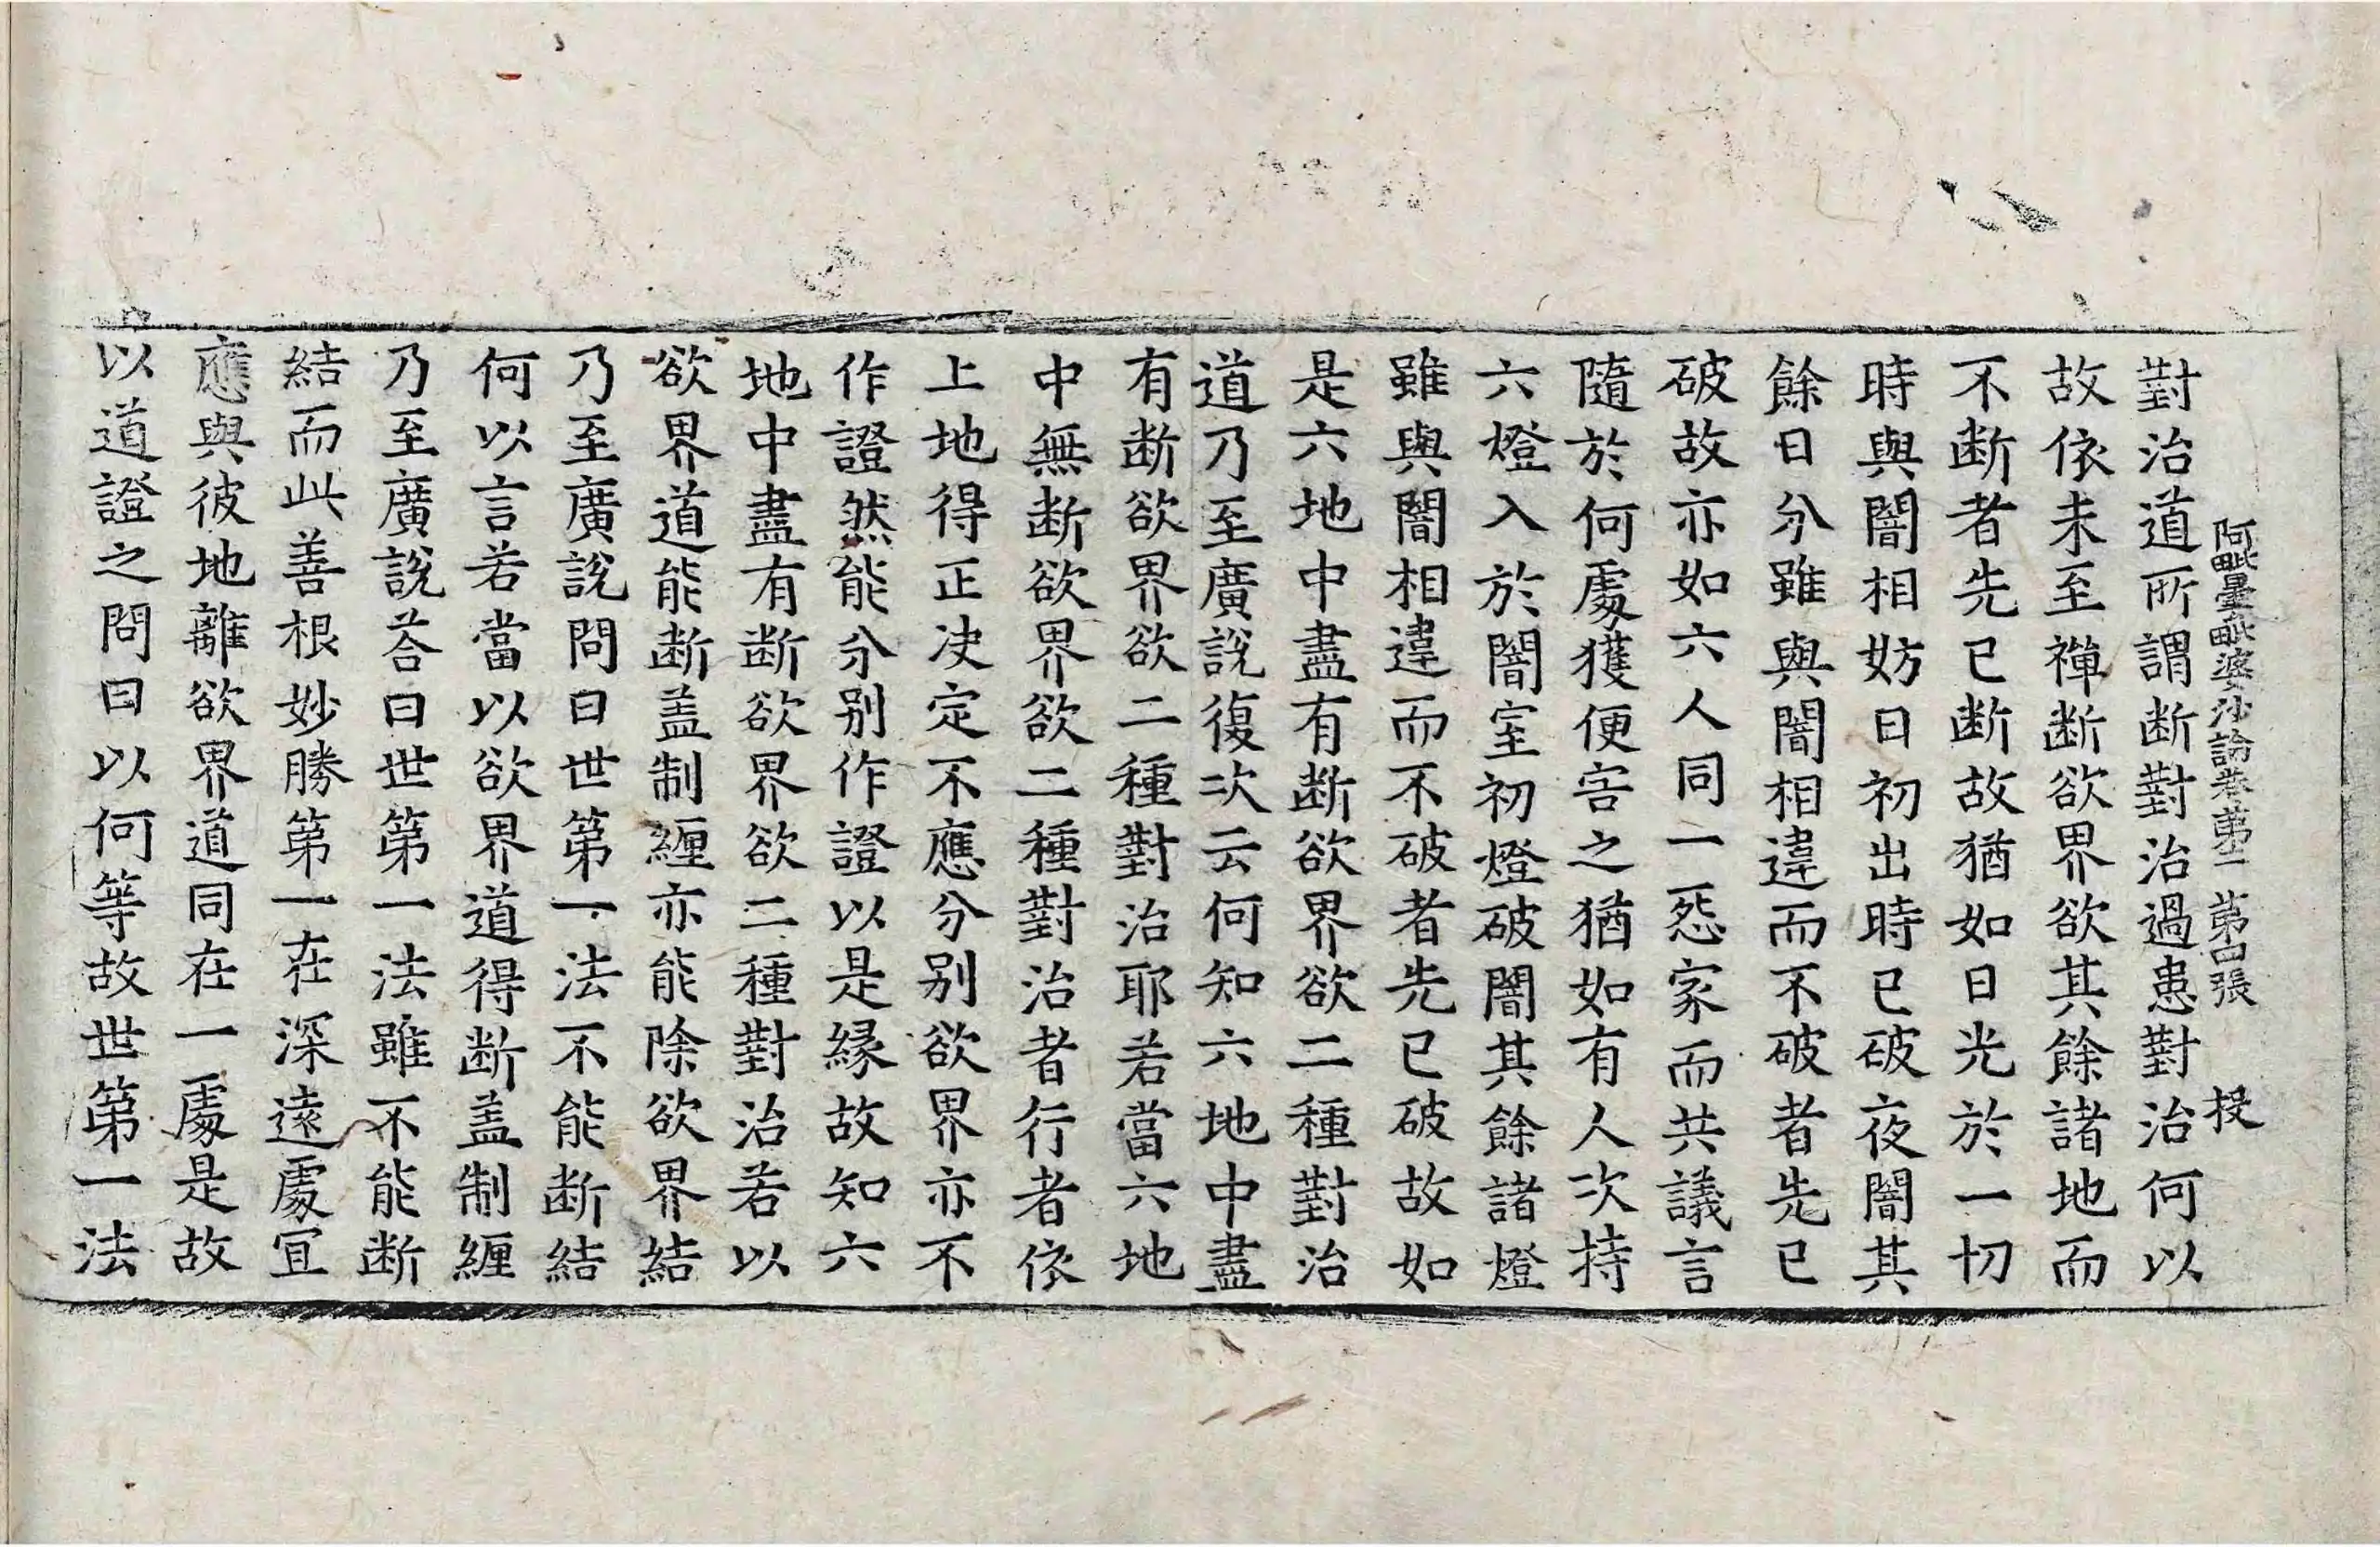 阿毗曇毗婆沙論卷第二 第四張 投
對治道所謂断對治過患對治何以
故依未至禪断欲界欲其餘諸地而
不断者先已断故猶如日光於一切
時與闇相妨日初出時已破夜闇其
餘日分雖與闇相違而不破者先已
破故亦如六人同一怨家而共議言
隨於何處獲便害之猶如有人次持
六燈入於闇室初燈破闇其餘諸燈
雖與闇相違而不破者先已破故如
是六地中盡有断欲界欲二種對治
道乃至廣說復次云何知六地中盡
有断欲界欲二種對治耶若當六地
中無断欲界欲二種對治者行者依
上地得正决定不應分別欲界亦不
作證然能分別作證以是緣故知六
地中盡有断欲界欲二種對治若以
欲界道能断盖制纏亦能除欲界結
乃至廣說問曰世第一法不能断結
何以言若當以欲界道得断盖制纏
乃至廣說荅曰世第一法雖不能断
結而此善根妙勝第一在深遠處宜
應與彼地離欲界道同在一處是故
以道證之問曰以何等故世第一法